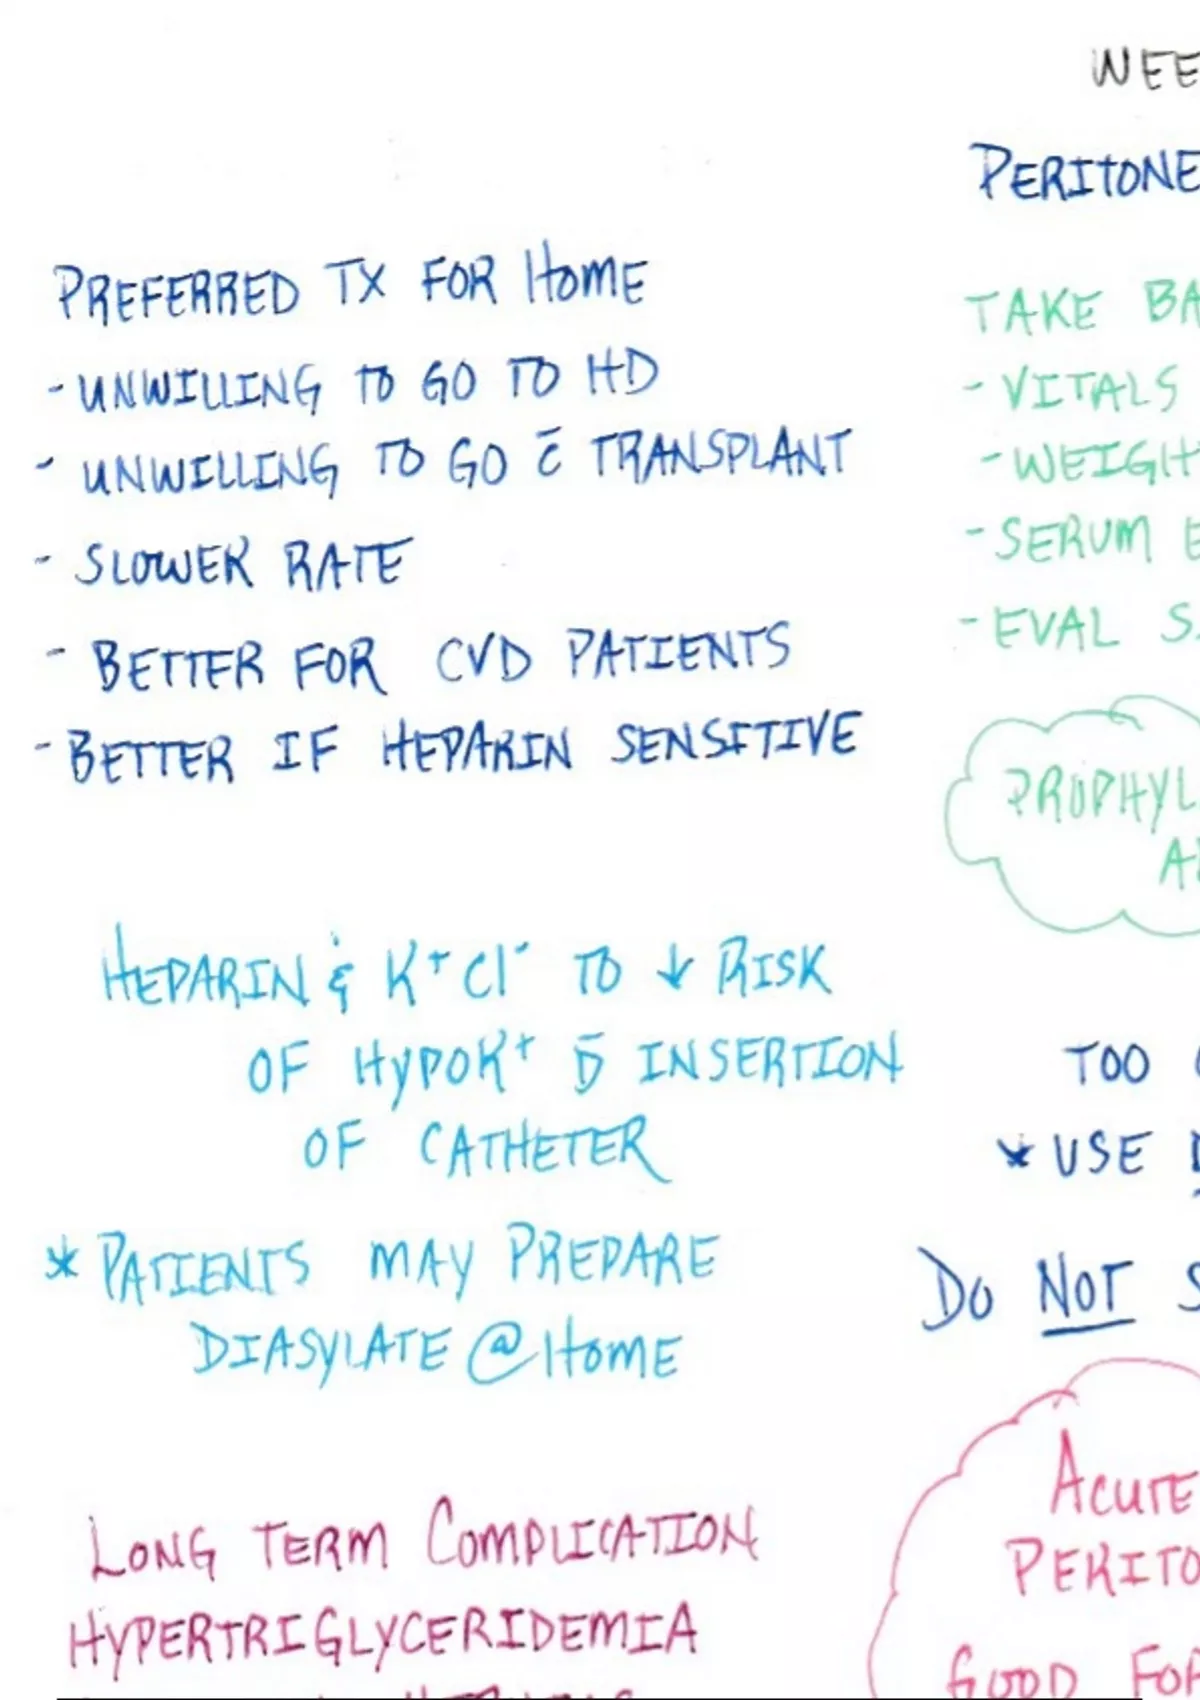 WEE
PERITONE
PREFERRED TX FOR HOME
- UNWILLING TO GO TO HD
- UNWILLING TO GO c̄ TRANSPLANT
- SLOWER RATE
- BETTER FOR CVD PATIENTS
- BETTER IF HEPARIN SENSITIVE
TAKE BA
- VITALS
- WEIGH
- SERUM E
- EVAL S
PROPHYL
HEPARIN & K⁺Cl⁻ TO ↓ RISK
OF HYPOK⁺ p̄ INSERTION
OF CATHETER
* PATIENTS MAY PREPARE
DIASYLATE @ HOME
TOO
* USE
DO NOT S
LONG TERM COMPLICATION
HYPERTRIGLYCERIDEMIA
ACUTE
PERITO
GOOD FOR